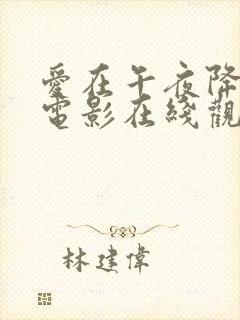 愛在午夜降
電影在綫觀
林建偉